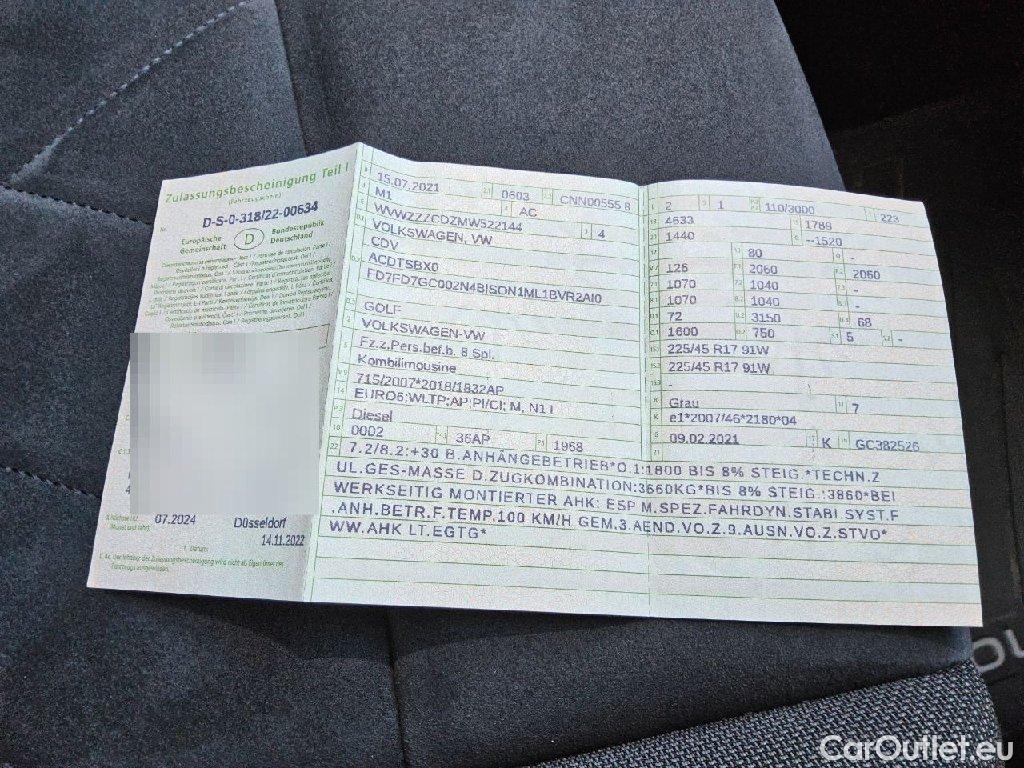 Zulassungsbescheinigung Teil I
(Fahrzeugschein)
Nr. D-S-0-318/22-00634
Europäische Gemeinschaft D Bundesrepublik Deutschland
07.2024 Düsseldorf
14.11.2022
15.07.2021 0603 CNN00555 8
M1 AC
WVWZZZCDZMW522144 4
VOLKSWAGEN, VW
CDV
ACDTSBX0
FD7FD7GC002N4BISON1ML1BVR2AI0
GOLF
VOLKSWAGEN-VW
Fz.z.Pers.bef.b. 8 Spl.
Kombilimousine
715/2007*2018/1832AP
EURO6;WLTP;AP;PI/CI; M, N1 I
Diesel
0002 36AP 1968
2 1 110/3000 223
4633 1789
1440 --1520
80 -
125 2060 2060
1070 1040 -
1070 1040 -
72 3150 68
1600 750 5 -
225/45 R17 91W
225/45 R17 91W
-
-
Grau 7
e1*2007/46*2180*04
09.02.2021 K GC382526
7.2/8.2:+30 B.ANHÄNGEBETRIEB*O.1:1800 BIS 8% STEIG.*TECHN.Z
UL.GES-MASSE D.ZUGKOMBINATION:3660KG*BIS 8% STEIG.:3860*BEI
WERKSEITIG MONTIERTER AHK: ESP M.SPEZ.FAHRDYN.STABI SYST.F
.ANH.BETR.F.TEMP.100 KM/H GEM.3.AEND.VO.Z.9.AUSN.VO.Z.STVO*
WW.AHK LT.EGTG*
CarOutlet.eu